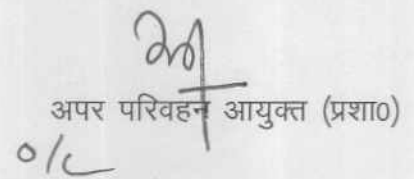 अपर परिवहन आयुक्त (प्रशा0)
o/c